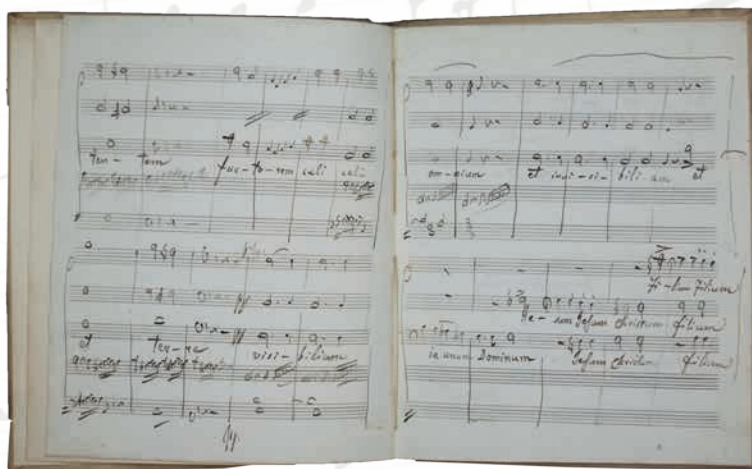 ten- tem fac- to- rem celi celi
et ter- re visi- bilium
om- nium et invi- si- bili- um et
Fi- lium Filium
Je- sum Jesum Christum filium
in unum Dominum Jesum Christ- filium